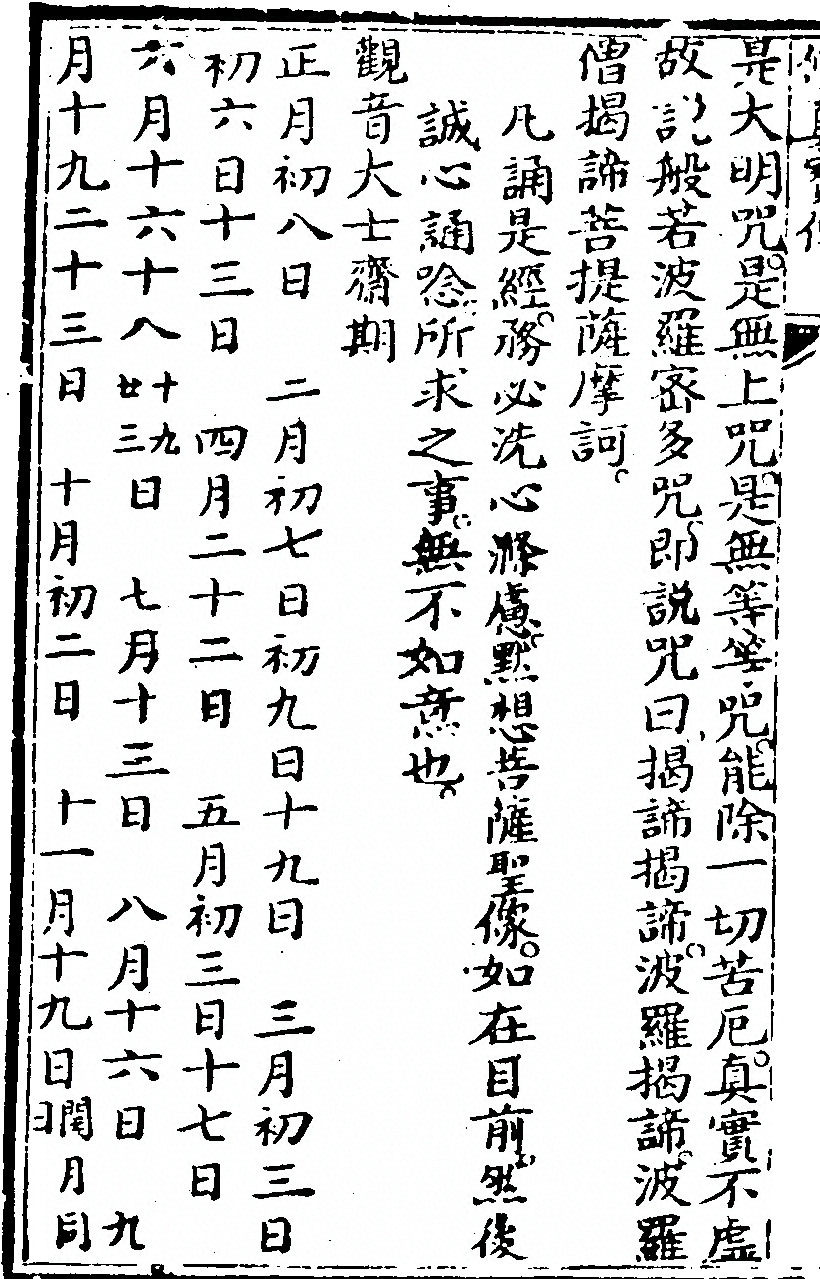 是大明咒是無上咒是無等等咒能除一切苦厄真實不虛
故說般若波羅密多咒即說咒曰揭諦揭諦波羅揭諦波羅
僧揭諦菩提薩摩訶
凡誦是經務必洗心滌慮默想菩薩聖像如在目前然後
誠心誦唸所求之事無不如意也
觀音大士齋期
正月初八日 二月初七日初九日十九日 三月初三日
初六日十三日 四月二十二日 五月初三日十七日
六月十六十八十九廿三日 七月十三日 八月十六日 九
月十九二十三日 十月初二日 十一月十九日閏月同日